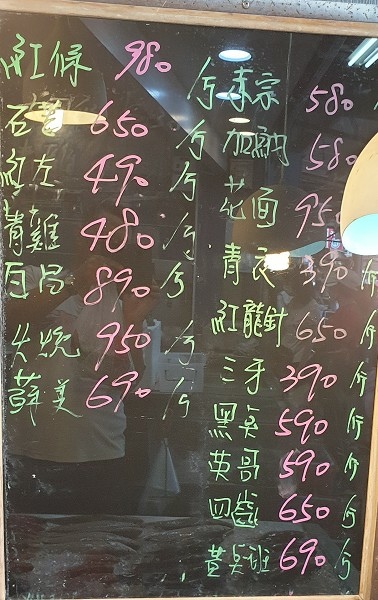 紅條 980 斤
石 650 斤
紅左 490 斤
青雞 480 斤
890 斤
950 斤
蘇美 690 斤
宗 580
加納 580
花面 950
青衣 390 斤
紅龍針 650 斤
三牙 390 斤
黑点 590 斤
英哥 590 斤
四齒 650 斤
黃点班 690 斤